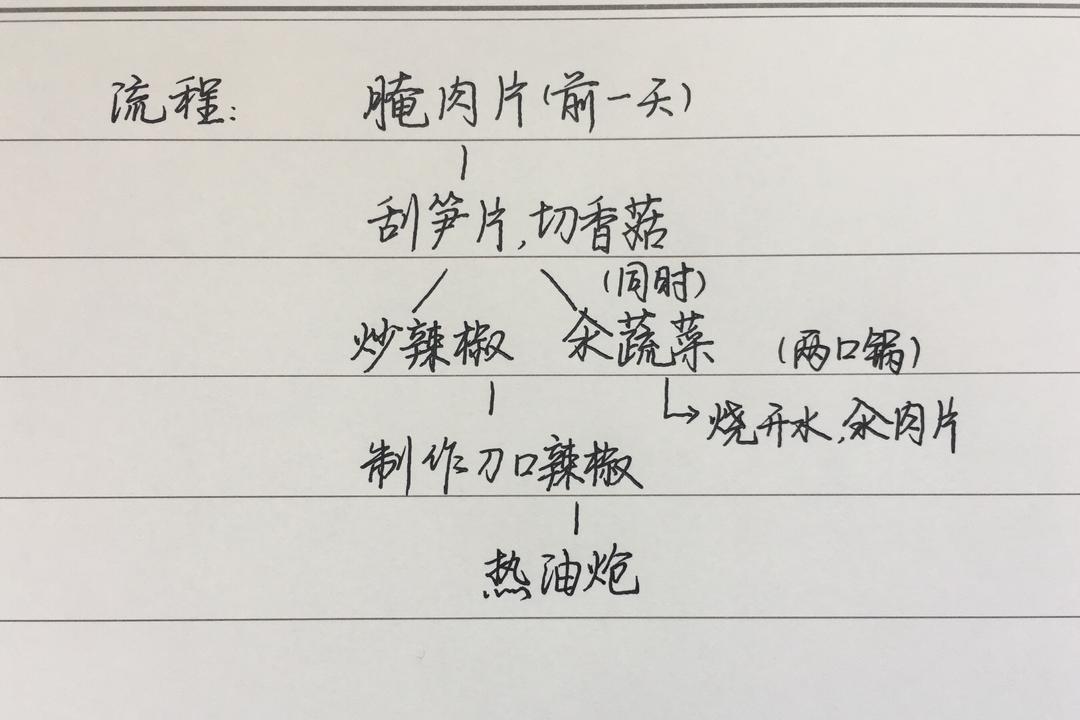 流程: 腌肉片(前一天)
刮笋片,切香菇
(同时)
炒辣椒 汆蔬菜 (两口锅)
烧开水,汆肉片
制作刀口辣椒
热油炝